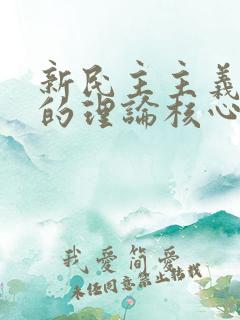 新民主主義
的理論核心
我愛簡愛
未經同意禁止轉載